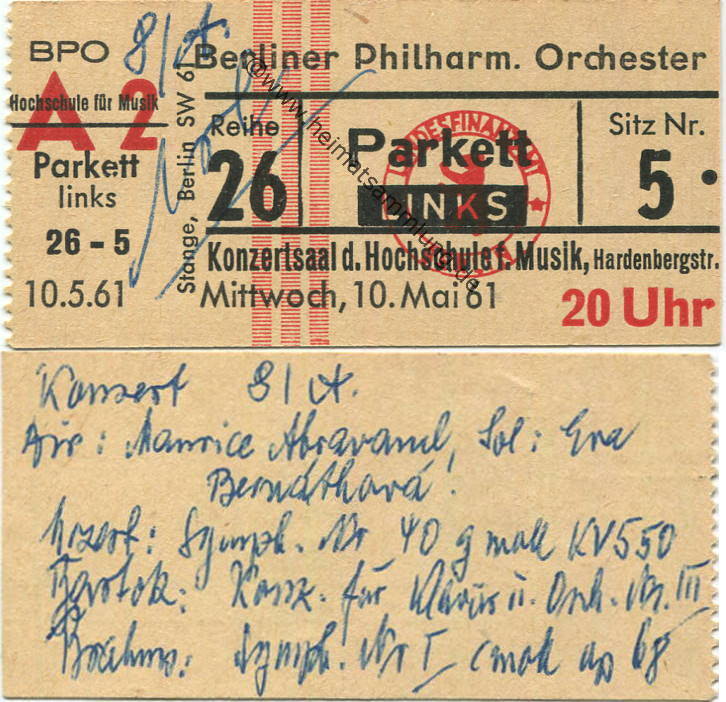 BPO 8/A.
A 2
Hochschule für Musik
Parkett
links
26 - 5
10.5.61
Stange, Berlin SW 61
Berliner Philharm. Orchester
Reihe
26
Parkett
LINKS
Sitz Nr.
5
LANDESFINANZAMT
Konzertsaal d. Hochschule f. Musik, Hardenbergstr.
Mittwoch, 10. Mai 61
20 Uhr
©www.heimatsammlung.de
Konzert 8/A.
Dir: Maurice Abravanel, Sol: Eva
Bernáthová!
Mozart: Symph. Nr 40 g moll KV550
Bartok: Konz. für Klavier u. Orch. Nr. III
Brahms: Symph. Nr I c moll op 68